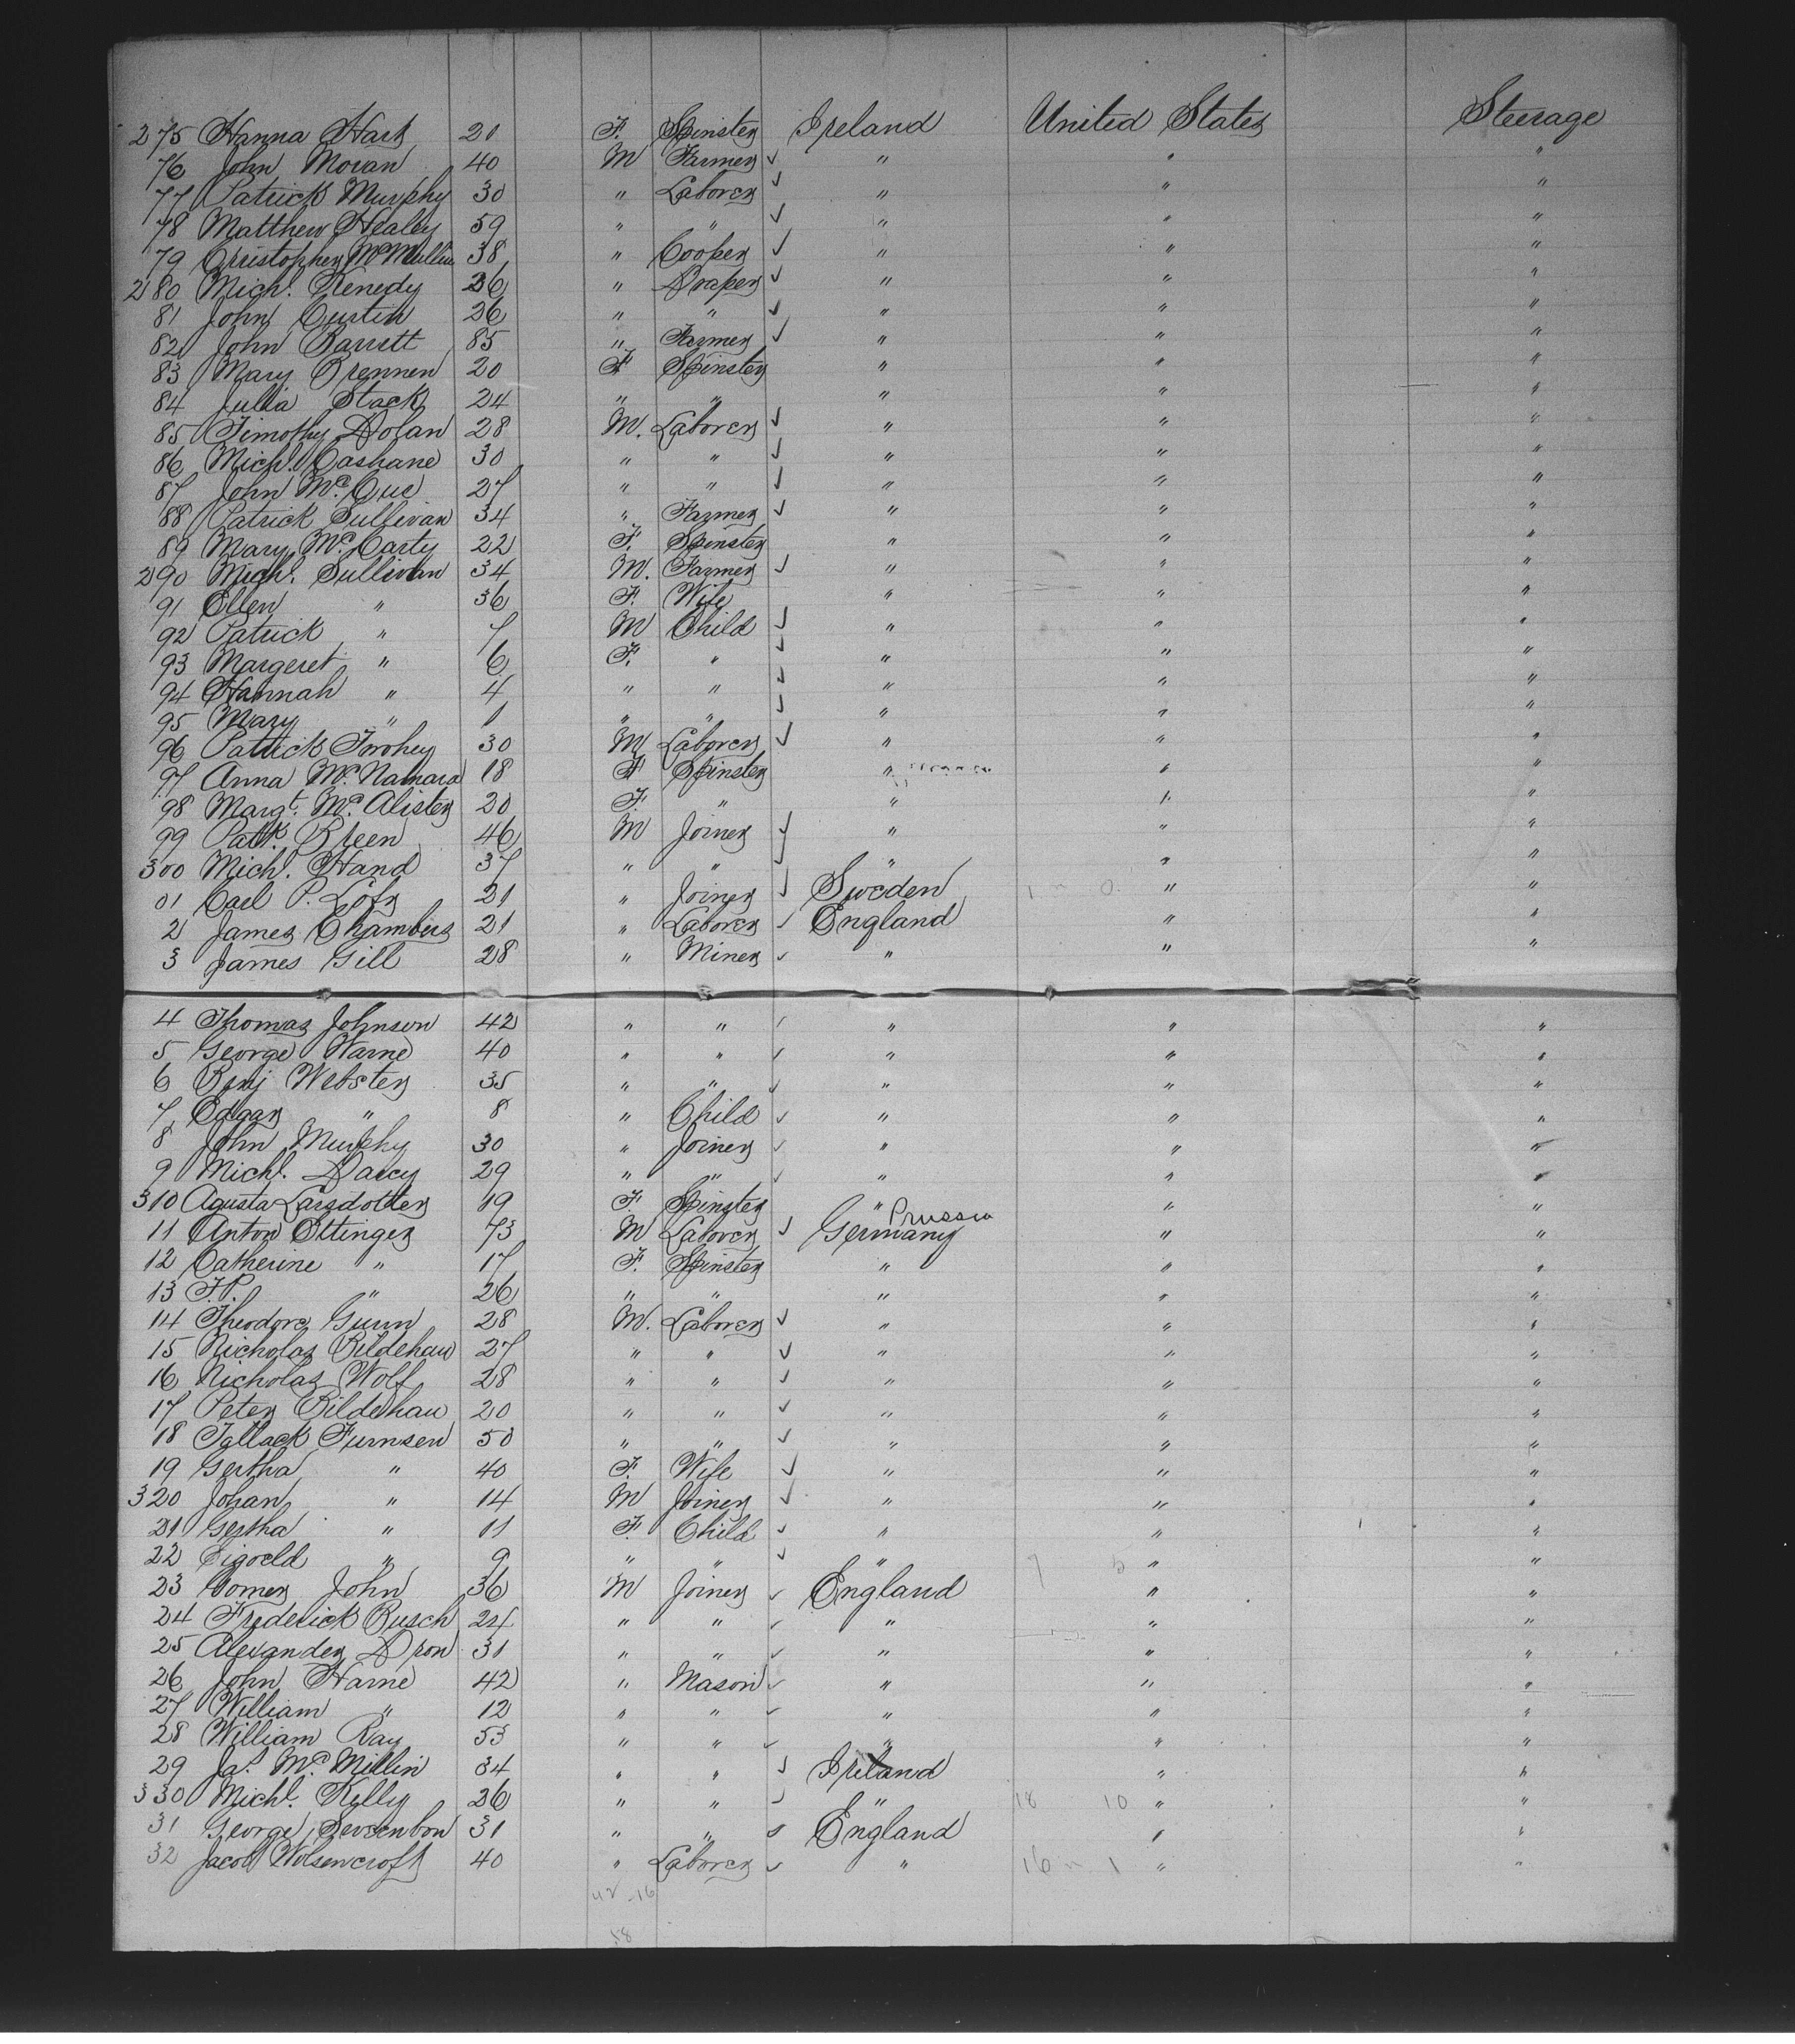 275 Hanna Hart 20 F. Spinster Ireland United States Steerage
76 John Moran 40 M Farmer ✓ " " "
77 Patrick Murphy 30 " Laborer ✓ " " "
78 Matthew Healey 59 " " ✓ " " "
79 Christopher McMullin 38 " Cooper ✓ " " "
280 Michl. Kenedy 26 " Draper ✓ " " "
81 John Curtin 26 " " ✓ " " "
82 John Barrett 85 " Farmer ✓ " " "
83 Mary Brennen 20 F Spinster " " "
84 Julia Stack 24 " " " " "
85 Timothy Dolan 28 M. Laborer ✓ " " "
86 Michl. Cashane 30 " " ✓ " " "
87 John McCue 27 " " ✓ " " "
88 Patrick Sullivan 34 " Farmer ✓ " " "
89 Mary McCarty 22 F. Spinster " " "
290 Michl. Sullivan 34 M. Farmer ✓ " " "
91 Ellen " 36 F. Wife " " "
92 Patrick " 7 M Child ✓ " " "
93 Margeret " 6 F. " ✓ " " "
94 Hannah " 4 " " ✓ " " "
95 Mary " 1 " " ✓ " " "
96 Patrick Twohey 30 M Laborer ✓ " " "
97 Anna McNamara 18 F Spinster " " "
98 Margt. McAlister 20 F. " " " "
99 Patk. Breen 46 M Joiner ✓ " " "
300 Michl. Hand 37 " " ✓ " " "
01 Carl P. 21 " Joiner ✓ Sweden " "
2 James Chambers 21 " Laborer ✓ England " "
3 James Gill 28 " Miner ✓ " " "
4 Thomas Johnson 42 " " ✓ " " "
5 George Warne 40 " " ✓ " " "
6 Benj Webster 35 " " ✓ " " "
7 Edgar " 8 " Child ✓ " " "
8 John Murphy 30 " Joiner ✓ " " "
9 Michl. Darcy 29 " " ✓ " " "
310 Agusta Larsdotter 19 F. Spinster " " "
11 Anton Ettinger 73 M Laborer ✓ Germany Prussia " "
12 Catherine " 17 F. Spinster " " "
13 F.P. " 26 " " " " "
14 Theodore Gunn 28 M. Laborer ✓ " " "
15 Nicholas Bildehau 27 " " ✓ " " "
16 Nicholas Wolf 28 " " ✓ " " "
17 Peter Bildehau 20 " " ✓ " " "
18 Furnsen 50 " " ✓ " " "
19 Gertha " 40 F. Wife ✓ " " "
320 Johan " 14 M Joiner ✓ " " "
21 Gertha " 11 F. Child ✓ " " "
22 " 9 " " ✓ " " "
23 John 36 M Joiner ✓ England " "
24 Frederick Busch 24 " " ✓ " " "
25 Alexander Dron 31 " " ✓ " " "
26 John Harne 42 " Mason ✓ " " "
27 William " 12 " " ✓ " " "
28 William Ray 53 " " ✓ " " "
29 Ja. McMillin 34 " " ✓ Ireland " "
330 Michl. Kelly 26 " " ✓ " 18 10 " "
31 George 31 " " England " "
32 Jacob Wolsencroft 40 " Laborer ✓ " 16 1 " "
42-16
58